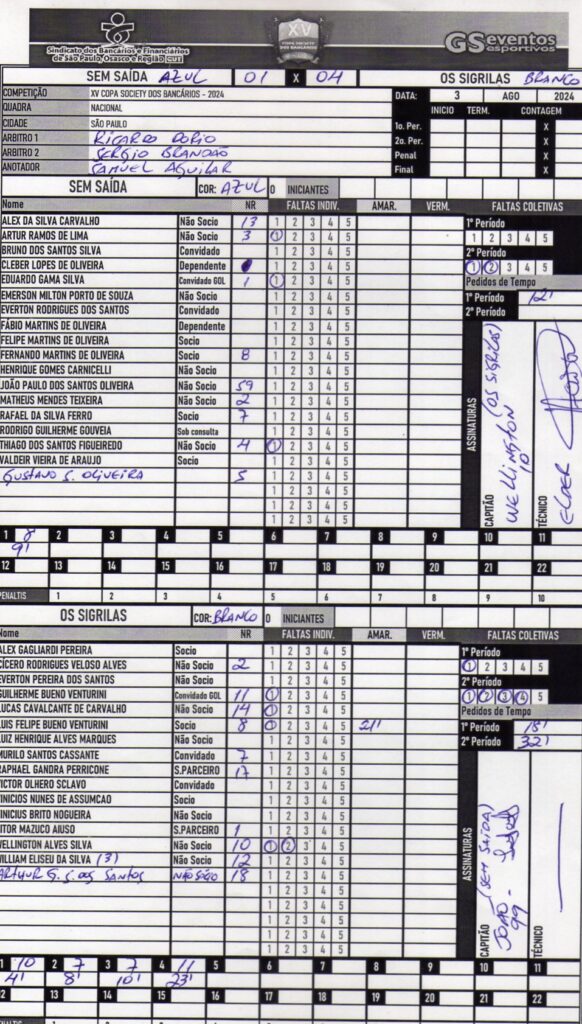 Sindicato dos Bancários e Financiários
de São Paulo, Osasco e Região CUT
XV
COPA SOCIETY
DOS BANCÁRIOS
GS eventos
esportivos
SEM SAÍDA AZUL 01 X 04 OS SIGRILAS BRANCO
COMPETIÇÃO XV COPA SOCIETY DOS BANCÁRIOS - 2024 DATA: 3 AGO 2024
QUADRA NACIONAL INICIO TERM. CONTAGEM
CIDADE SÃO PAULO 1o. Per. X
ARBITRO 1 RICARDO DORIO 2a. Per. X
ARBITRO 2 SERGIO BRANDÃO Penal X
ANOTADOR SAMUEL AGUILAR Final X
SEM SAÍDA COR: AZUL 0 INICIANTES
Nome NR FALTAS INDIV. AMAR. VERM. FALTAS COLETIVAS
ALEX DA SILVA CARVALHO Não Socio 13 1 2 3 4 5 1º Período
ARTUR RAMOS DE LIMA Não Socio 3 1 2 3 4 5 1 2 3 4 5
BRUNO DOS SANTOS SILVA Convidado 1 2 3 4 5 2º Período
CLEBER LOPES DE OLIVEIRA Dependente 1 2 3 4 5 1 2 3 4 5
EDUARDO GAMA SILVA Convidado GOL 1 1 2 3 4 5 Pedidos de Tempo
EMERSON MILTON PORTO DE SOUZA Não Socio 1 2 3 4 5 1º Período 12'
EVERTON RODRIGUES DOS SANTOS Convidado 1 2 3 4 5 2º Período
FÁBIO MARTINS DE OLIVEIRA Dependente 1 2 3 4 5
FELIPE MARTINS DE OLIVEIRA Socio 1 2 3 4 5
FERNANDO MARTINS DE OLIVEIRA Socio 8 1 2 3 4 5
HENRIQUE GOMES CARNICELLI Não Socio 1 2 3 4 5
JOÃO PAULO DOS SANTOS OLIVEIRA Não Socio 59 1 2 3 4 5
MATHEUS MENDES TEIXEIRA Não Socio 2 1 2 3 4 5
RAFAEL DA SILVA FERRO Socio 7 1 2 3 4 5
RODRIGO GUILHERME GOUVEIA Sob consulta 1 2 3 4 5
THIAGO DOS SANTOS FIGUEIREDO Não Socio 4 1 2 3 4 5
VALDEIR VIEIRA DE ARAUJO Socio 1 2 3 4 5
GUSTAVO S. OLIVEIRA 5 1 2 3 4 5
1 2 3 4 5
1 2 3 4 5
ASSINATURAS
CAPITÃO WELLINGTON (OS SIGRILAS) 10
TÉCNICO ELDER
1 8 2 3 4 5 6 7 8 9 10 11
9'
12 13 14 15 16 17 18 19 20 21 22
PENALTIS 1 2 3 4 5 6 7 8 9 10
OS SIGRILAS COR: BRANCO 0 INICIANTES
Nome NR FALTAS INDIV. AMAR. VERM. FALTAS COLETIVAS
ALEX GAGLIARDI PEREIRA Socio 1 2 3 4 5 1º Período
CÍCERO RODRIGUES VELOSO ALVES Não Socio 2 1 2 3 4 5 1 2 3 4 5
EVERTON PEREIRA DOS SANTOS Não Socio 1 2 3 4 5 2º Período
GUILHERME BUENO VENTURINI Convidado GOL 11 1 2 3 4 5 1 2 3 4 5
LUCAS CAVALCANTE DE CARVALHO Não Socio 14 1 2 3 4 5 Pedidos de Tempo
LUIS FELIPE BUENO VENTURINI Socio 8 1 2 3 4 5 21' 1º Período 18'
LUIZ HENRIQUE ALVES MARQUES Não Socio 1 2 3 4 5 2º Período 32'
MURILO SANTOS CASSANTE Convidado 7 1 2 3 4 5
RAPHAEL GANDRA PERRICONE S.PARCEIRO 17 1 2 3 4 5
VICTOR OLHERO SCLAVO Convidado 1 2 3 4 5
VINICIOS NUNES DE ASSUMCAO Socio 1 2 3 4 5
VINICIUS BRITO NOGUEIRA Não Socio 1 2 3 4 5
VITOR MAZUCO AIUSO S.PARCEIRO 1 1 2 3 4 5
WELLINGTON ALVES SILVA Não Socio 10 1 2 3 4 5
WILLIAM ELISEU DA SILVA (3) Não Socio 12 1 2 3 4 5
ARTHUR G. S. DOS SANTOS NÃO SÓCIO 18 1 2 3 4 5
1 2 3 4 5
1 2 3 4 5
1 2 3 4 5
1 2 3 4 5
ASSINATURAS
CAPITÃO JOÃO (SEM SAÍDA) 99 -
TÉCNICO
1 10 2 7 3 7 4 11 5 6 7 8 9 10 11
4' 8' 10' 23'
12 13 14 15 16 17 18 19 20 21 22
PENALTIS 1 2 3 4 5 6 7 8 9 10